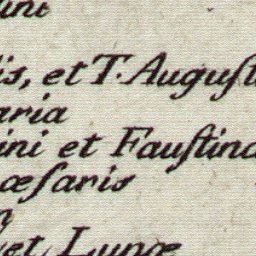 is, et T. Augu
aria
ini et Faustina
æsaris
et Lunæ